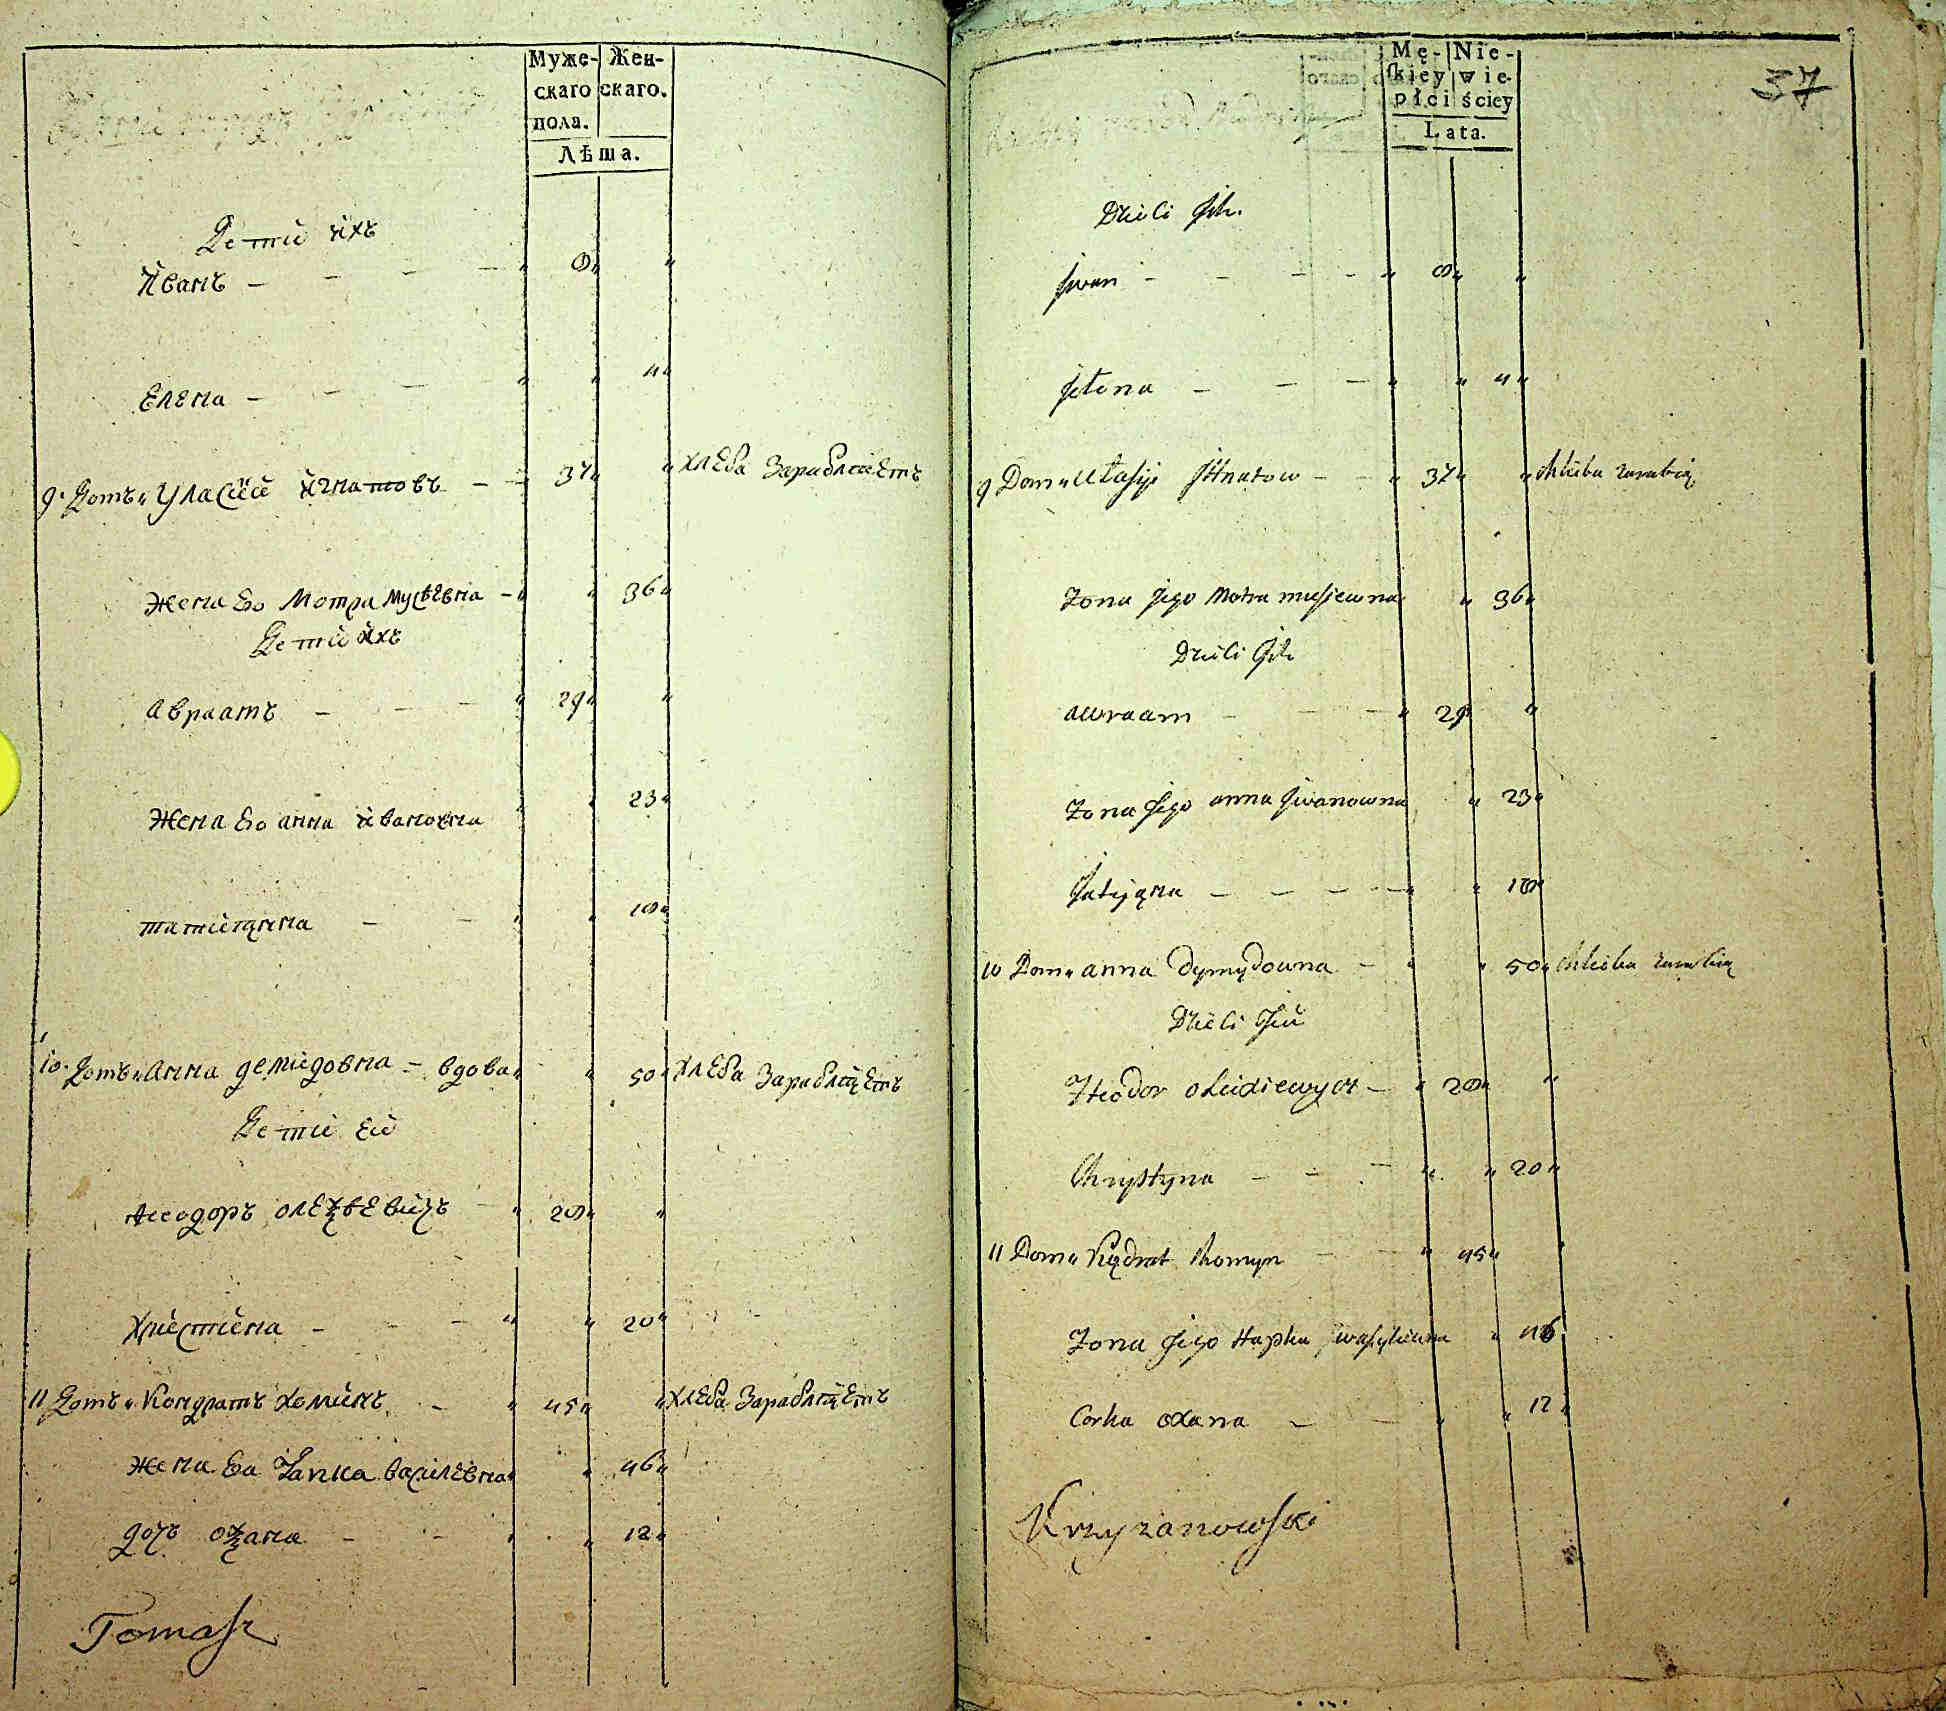 Муже- Жен-
скаго скаго.
пола.
Лѣта.
Дети ихъ
Иванъ - - - - „ 8„ „
Елена - - - „ „ 4„
9. Домъ„ Уласий игнатовъ - - 37„ „ хлеба зарабляетъ
Жена его Мотра мусѣевна - „ „ 36„
Дети ихъ
Авраамъ - - - - „ 29„ „
Жена его анна ивановна „ „ 23„
татияна - - „ „ 18„
10. Домъ„ Анна демидовна - вдова „ „ 50„ хлеба зарабляетъ
Дети ей
Ѳеодоръ олеѯѣевичъ - „ 28„ „
Христина - - - „ „ 20„
11 Домъ„ Кондратъ хоминъ - „ 45„ „ хлеба зарабляетъ
Жена его Гапка василевна „ „ 46„
дочъ оѯана - - „ „ 12„
Tomasz
37
Mę- Nie-
skiey wie-
płci ściey
Lata.
Dzieci Jch.
Jwan - - - - „ 8„ „
Jełena - - - „ „ 4„
9 Dom„ Ułasij Jhnatow - - „ 37„ „ chleba zarabia
Zona Jego Motra musiewna „ 36„
Dzieci Jch
awraam - - - „ 29 „
Zona Jego anna Jwanowna „ 23„
Tatyjana - - - - „ „ 18„
10 Dom„ anna Dymydowna - „ „ 50„ chleba zarabia
Dzieci Jeii
Fteodor olexiewycz - „ 28„ „
Chrystyna - - - „ „ 20„
11 Dom„ Kądrat Chomyn - - „ 45„ „
Zona Jego Hapka wasylewna „ 46
Corka oxana - - „ „ 12„
Krzyzanowski